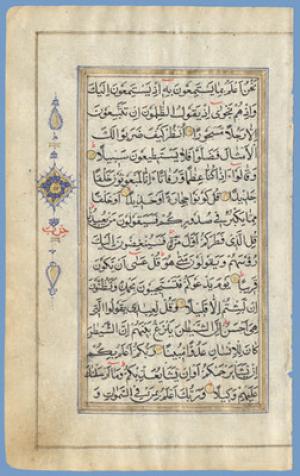 نَحْنُ اَعْلَمُ بِمَا يَسْتَمِعُونَ بِهِ اِذْ يَسْتَمِعُونَ اِلَيْكَ
وَاِذْ هُمْ نَجْوٰى اِذْ يَقُولُ الظّٰلِمُونَ اِنْ تَتَّبِعُونَ
اِلَّا رَجُلًا مَسْحُورًا اُنْظُرْ كَيْفَ ضَرَبُوا لَكَ
الْاَمْثَالَ فَضَلُّوا فَلَا يَسْتَطِيعُونَ سَبِيلًا
وَقَالُوا ءَاِذَا كُنَّا عِظَامًا وَرُفَاتًا ءَاِنَّا لَمَبْعُوثُونَ خَلْقًا
جَدِيدًا قُلْ كُونُوا حِجَارَةً اَوْ حَدِيدًا اَوْ خَلْقًا
مِمَّا يَكْبُرُ فِي صُدُورِكُمْ فَسَيَقُولُونَ مَنْ يُعِيدُنَا
قُلِ الَّذِي فَطَرَكُمْ اَوَّلَ مَرَّةٍ فَسَيُنْغِضُونَ اِلَيْكَ
رُءُوسَهُمْ وَيَقُولُونَ مَتٰى هُوَ قُلْ عَسٰى اَنْ يَكُونَ
قَرِيبًا يَوْمَ يَدْعُوكُمْ فَتَسْتَجِيبُونَ بِحَمْدِهِ وَتَظُنُّونَ
اِنْ لَبِثْتُمْ اِلَّا قَلِيلًا وَقُلْ لِعِبَادِي يَقُولُوا الَّتِي
هِيَ اَحْسَنُ اِنَّ الشَّيْطٰنَ يَنْزَغُ بَيْنَهُمْ اِنَّ الشَّيْطٰنَ
كَانَ لِلْاِنْسَانِ عَدُوًّا مُبِينًا رَبُّكُمْ اَعْلَمُ بِكُمْ
اِنْ يَشَأْ يَرْحَمْكُمْ اَوْ اِنْ يَشَأْ يُعَذِّبْكُمْ وَمَا اَرْسَلْنَاكَ
عَلَيْهِمْ وَكِيلًا وَرَبُّكَ اَعْلَمُ بِمَنْ فِي السَّمٰوَاتِ وَ
حزب